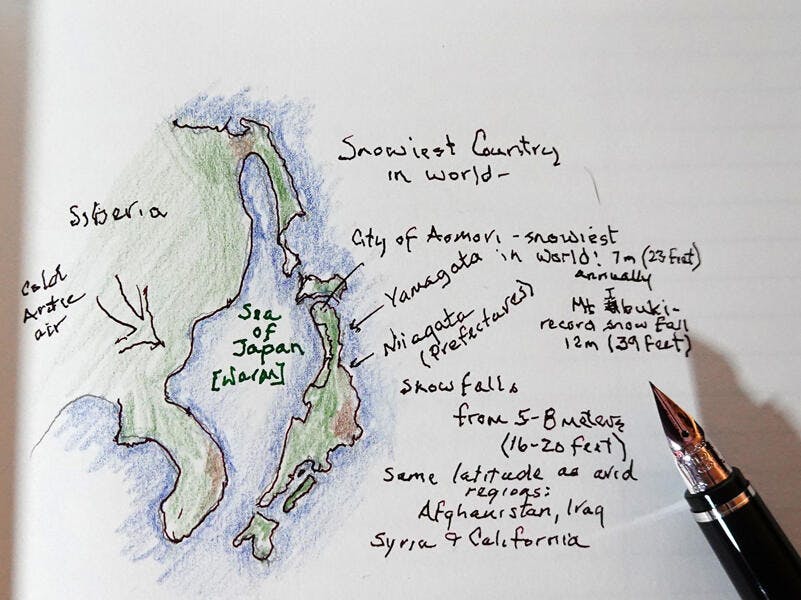 Snowiest Country
in world-
Siberia
Cold
Arctic
air
Sea
of
Japan
[Warm]
City of Aomori - snowiest
in world! 7m (23 feet)
annually
Yamagata
Niagata
(Prefectures)
Mt Ibuki-
record snow fall
12m (39 feet)
Snow falls
from 5-8 meters
(16-20 feet)
Same latitude as arid
regions:
Afghanistan, Iraq
Syria & California